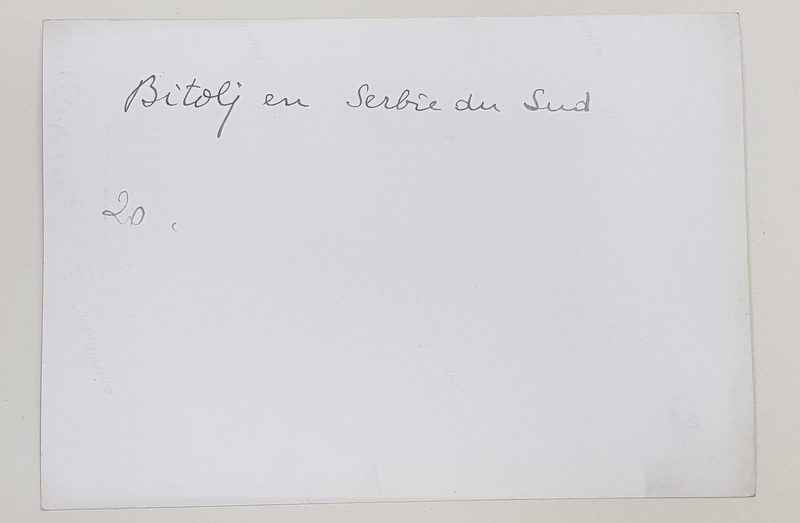 Bitolj en Serbie du Sud
20